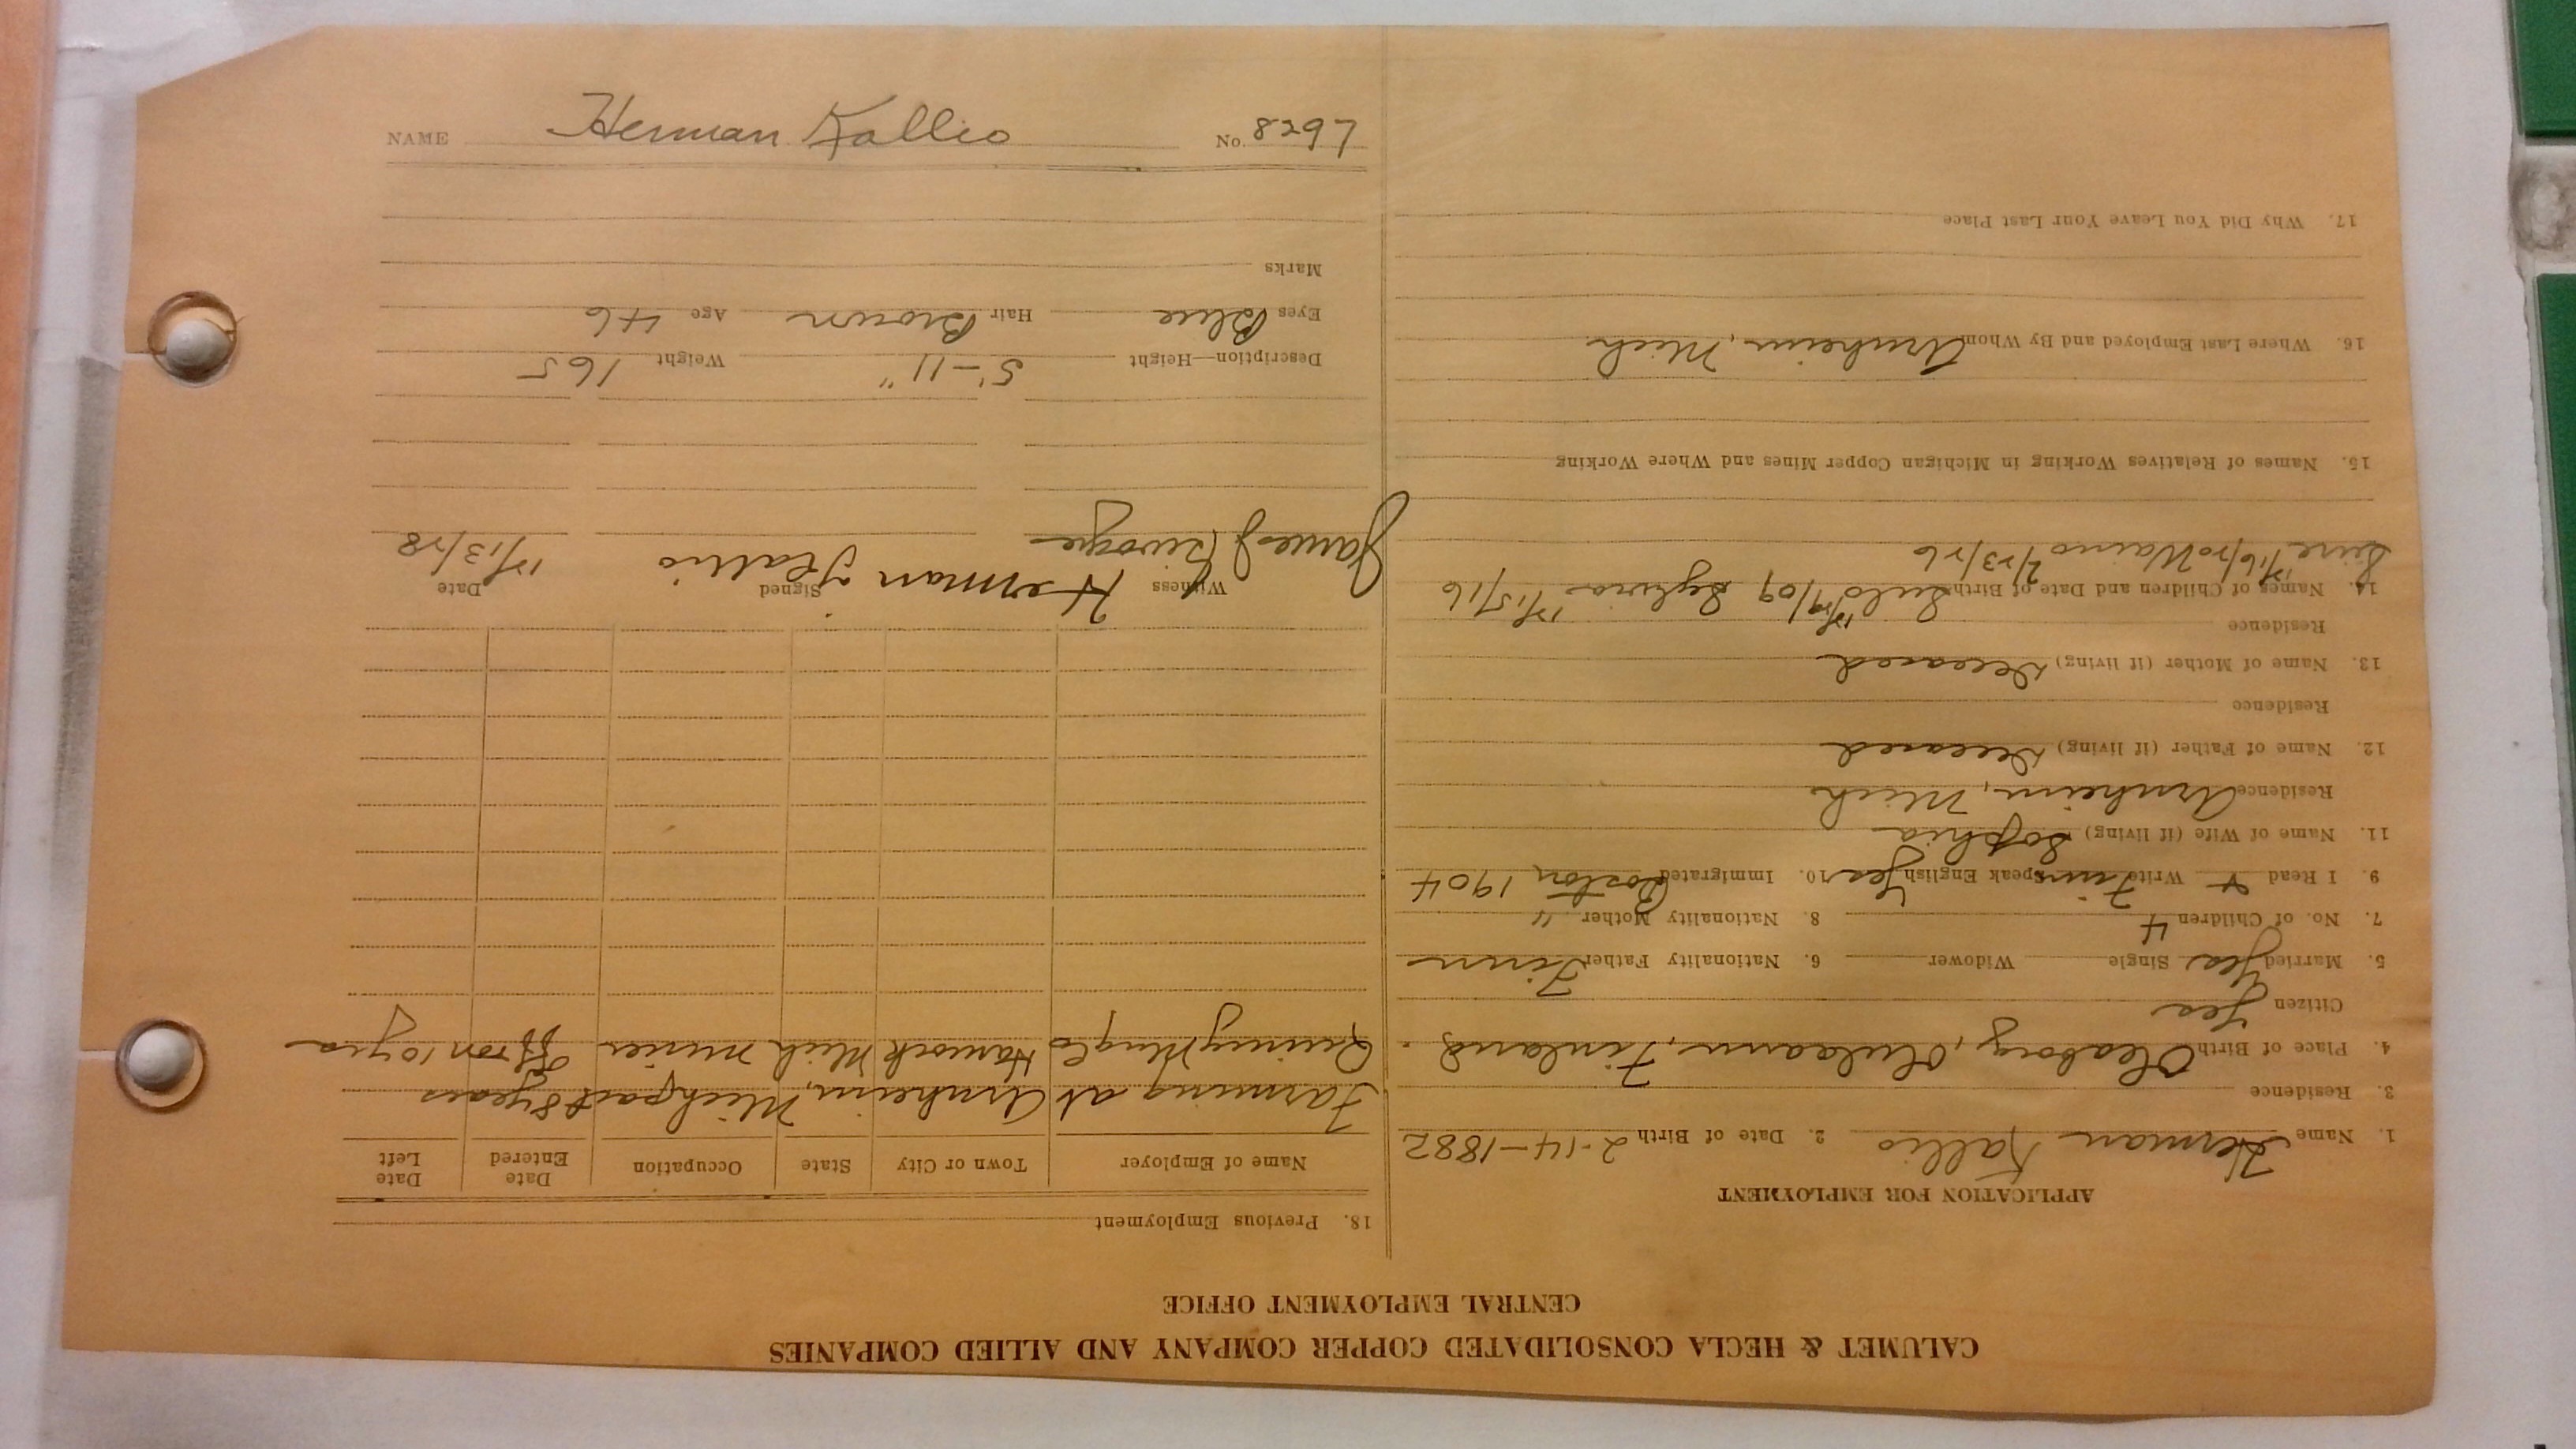 CALUMET & HECLA CONSOLIDATED COPPER COMPANY AND ALLIED COMPANIES
CENTRAL EMPLOYMENT OFFICE
APPLICATION FOR EMPLOYMENT
1. Name Herman Kallio 2. Date of Birth 2-14-1882
3. Residence
4. Place of Birth Oleaborg, Finland.
Citizen Yes
5. Married Yes Single Widower 6. Nationality Father Finn
7. No. of Children 4 8. Nationality Mother "
9. I Read & Write Finn Speak English Yes 10. Immigrated Boston 1904
11. Name of Wife (if living) Sophia
Residence Arnheim, Mich
12. Name of Father (if living) Deceased
Residence
13. Name of Mother (if living) Deceased
Residence
14. Names of Children and Date of Birth 09 Sylvia 12/15/16
Waino 2/23/26
15. Names of Relatives Working in Michigan Copper Mines and Where Working
16. Where Last Employed and By Whom Arnheim, Mich
17. Why Did You Leave Your Last Place
18. Previous Employment
Name of Employer Town or City State Occupation Date Entered Date Left
Farming at Arnheim, Mich past 8 years
Quincy Mng Co Hancock Mich miner off & on 10 yrs
Witness Signed Date
James J Herman Kallio 12/13/28
Description—Height 5'-11" Weight 165
Eyes Blue Hair Brown Age 46
Marks
NAME Herman Kallio No. 8297